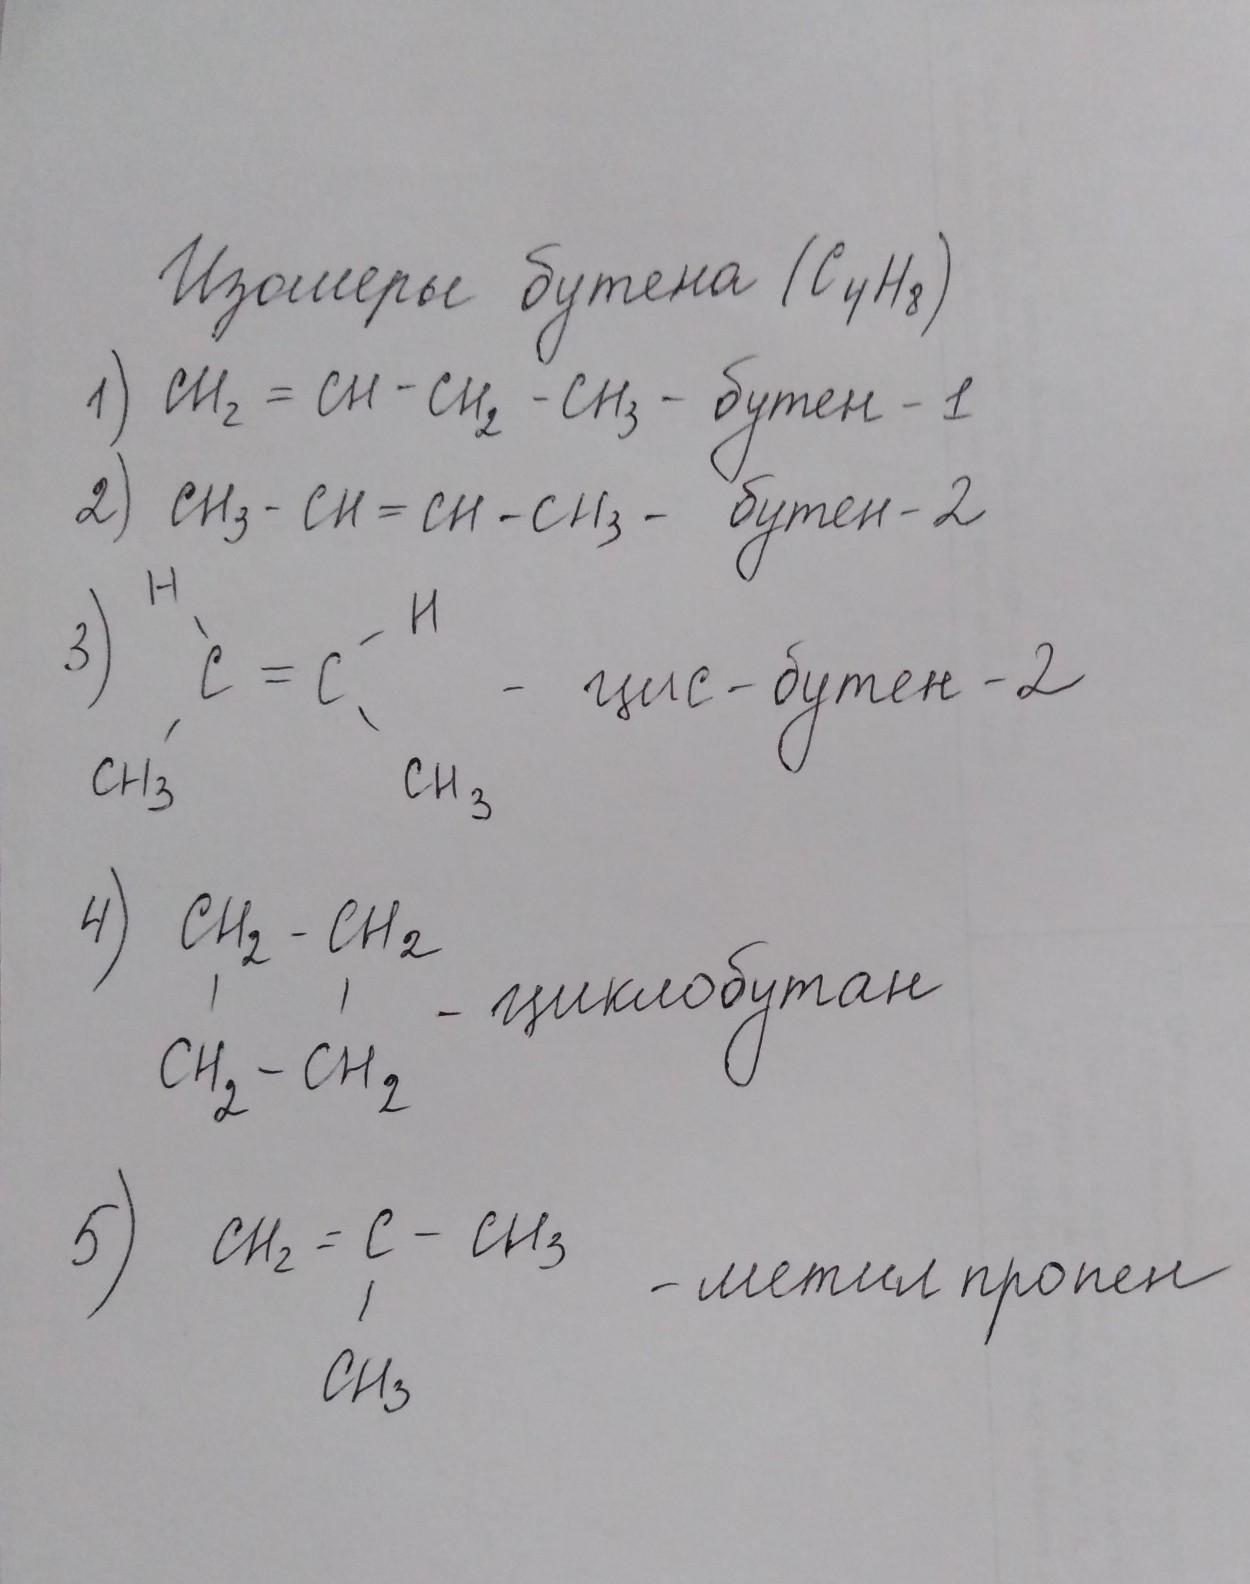 Изомеры бутена (C₄H₈)
1) CH₂ = CH - CH₂ - CH₃ - бутен - 1
2) CH₃ - CH = CH - CH₃ - бутен - 2
H H
3) C = C - цис - бутен - 2
CH₃ CH₃
4) CH₂ - CH₂
| | - циклобутан
CH₂ - CH₂
5) CH₂ = C - CH₃ - метилпропен
|
CH₃